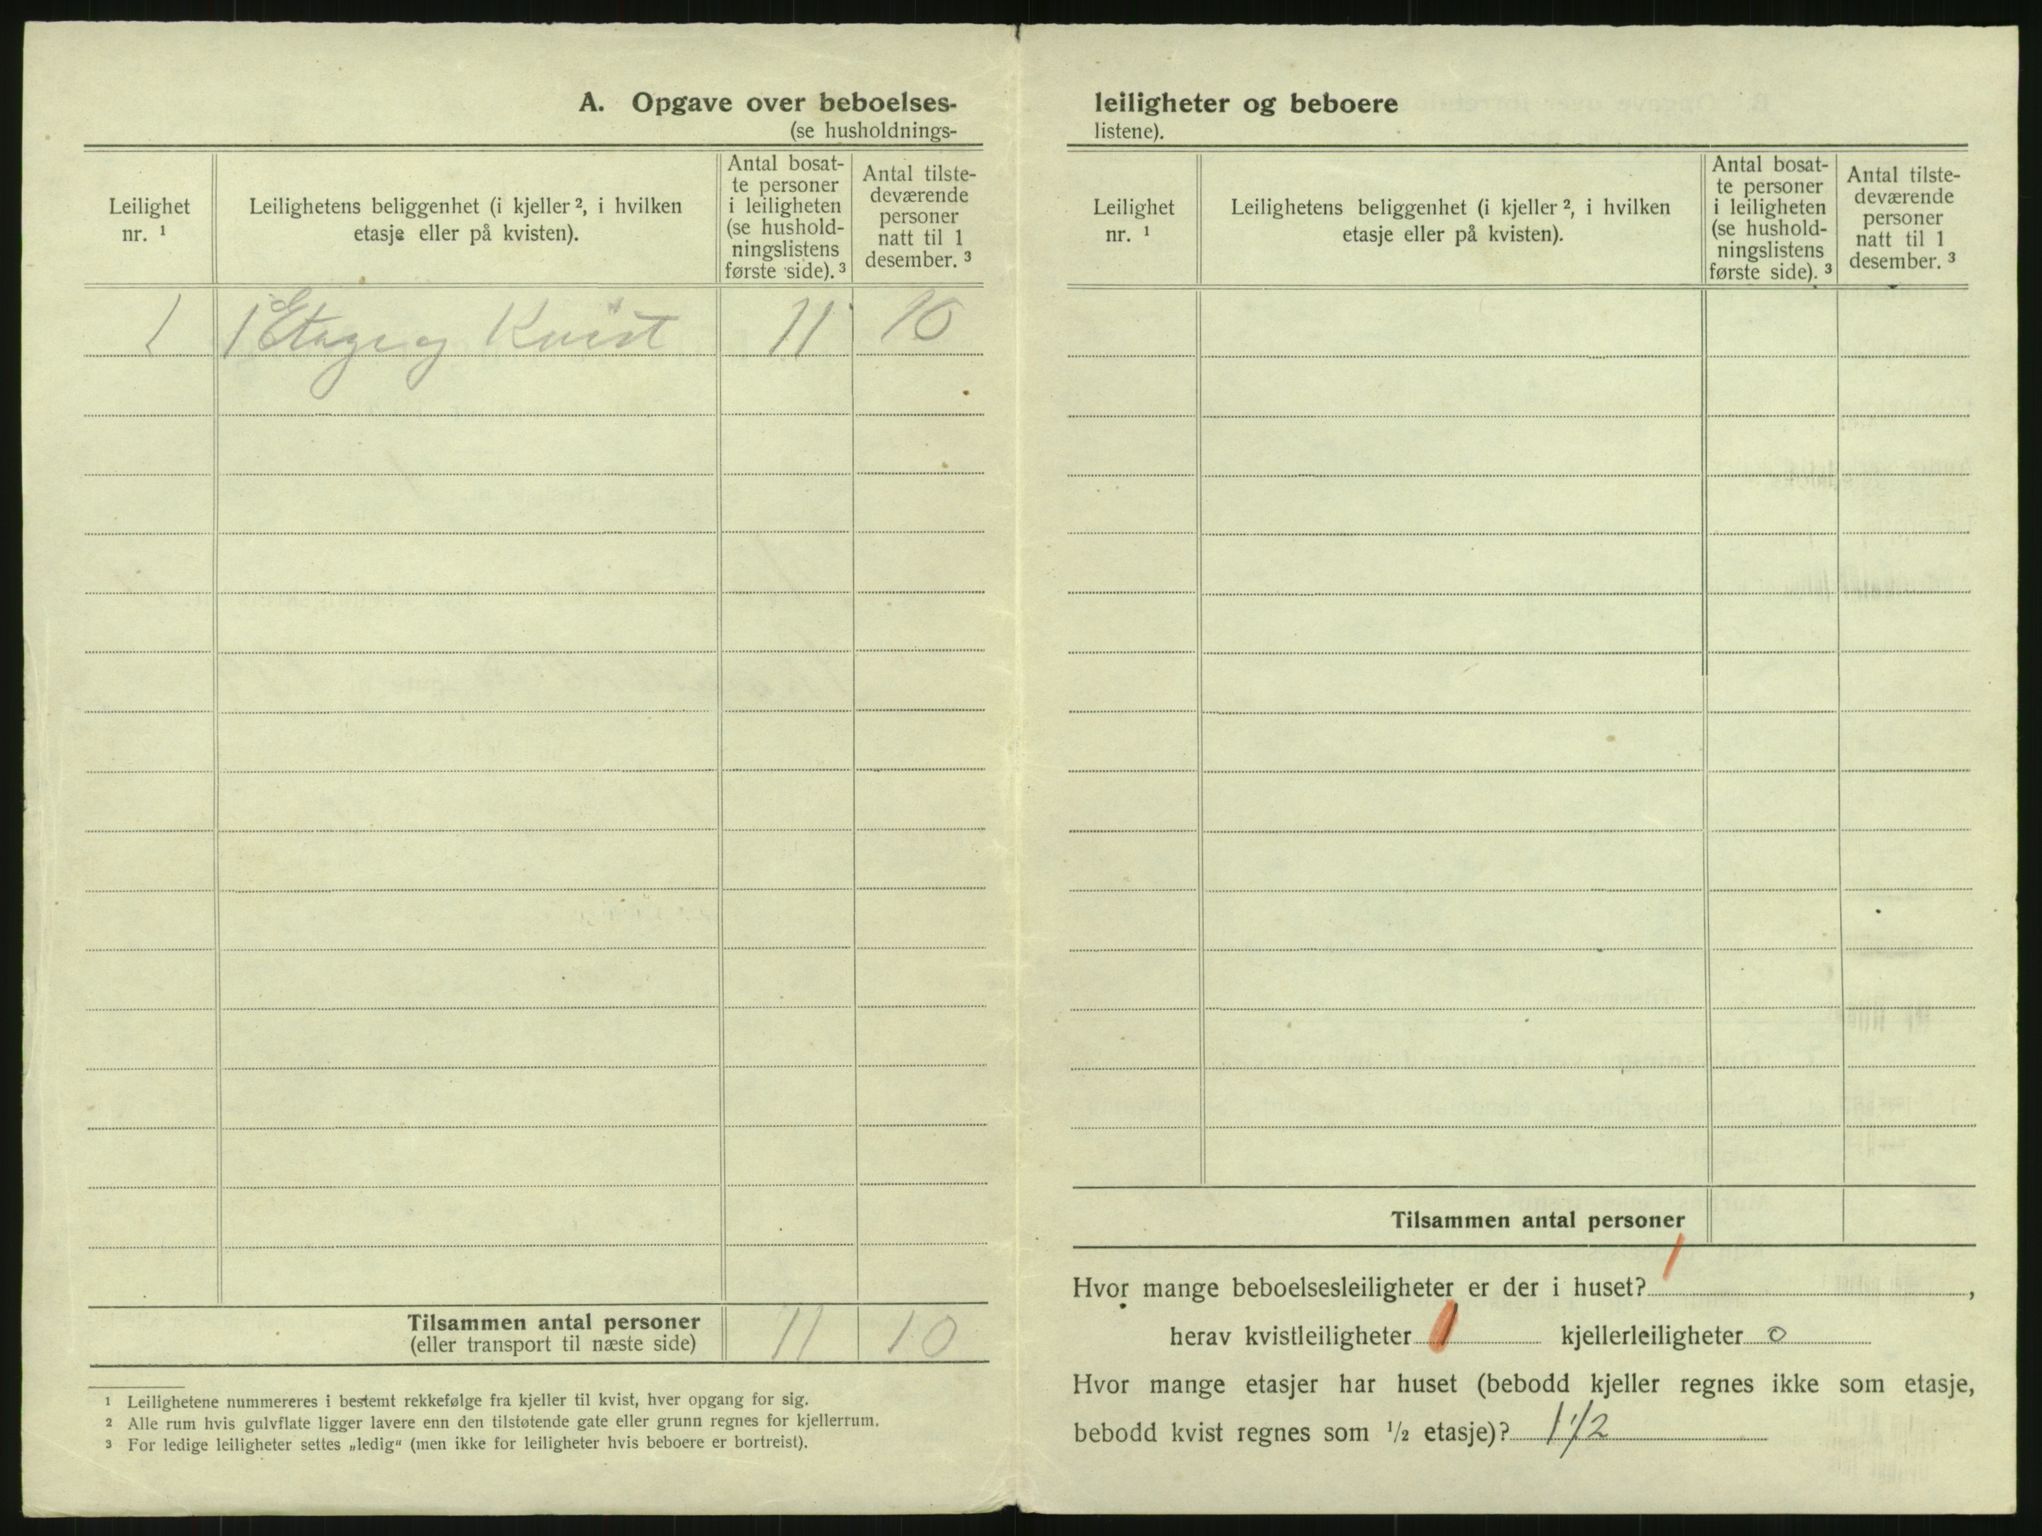 A. Opgave over beboelses-
(se husholdnings-
Leilighet
nr. ¹
Leilighetens beliggenhet (i kjeller ², i hvilken
etasje eller på kvisten).
Antal bosat-
te personer
i leiligheten
(se hushold-
ningslistens
første side). ³
Antal tilste-
deværende
personer
natt til 1
desember. ³
1 1 Etage og Kvist 11 10
Tilsammen antal personer 11 10
(eller transport til næste side)
¹ Leilighetene nummereres i bestemt rekkefølge fra kjeller til kvist, hver opgang for sig.
² Alle rum hvis gulvflate ligger lavere enn den tilstøtende gate eller grunn regnes for kjellerrum.
³ For ledige leiligheter settes „ledig“ (men ikke for leiligheter hvis beboere er bortreist).
leiligheter og beboere
listene).
Leilighet
nr. ¹
Leilighetens beliggenhet (i kjeller ², i hvilken
etasje eller på kvisten).
Antal bosat-
te personer
i leiligheten
(se hushold-
ningslistens
første side). ³
Antal tilste-
deværende
personer
natt til 1
desember. ³
Tilsammen antal personer
Hvor mange beboelsesleiligheter er der i huset? 1,
herav kvistleiligheter kjellerleiligheter 0
Hvor mange etasjer har huset (bebodd kjeller regnes ikke som etasje,
bebodd kvist regnes som ½ etasje)? 1 1/2